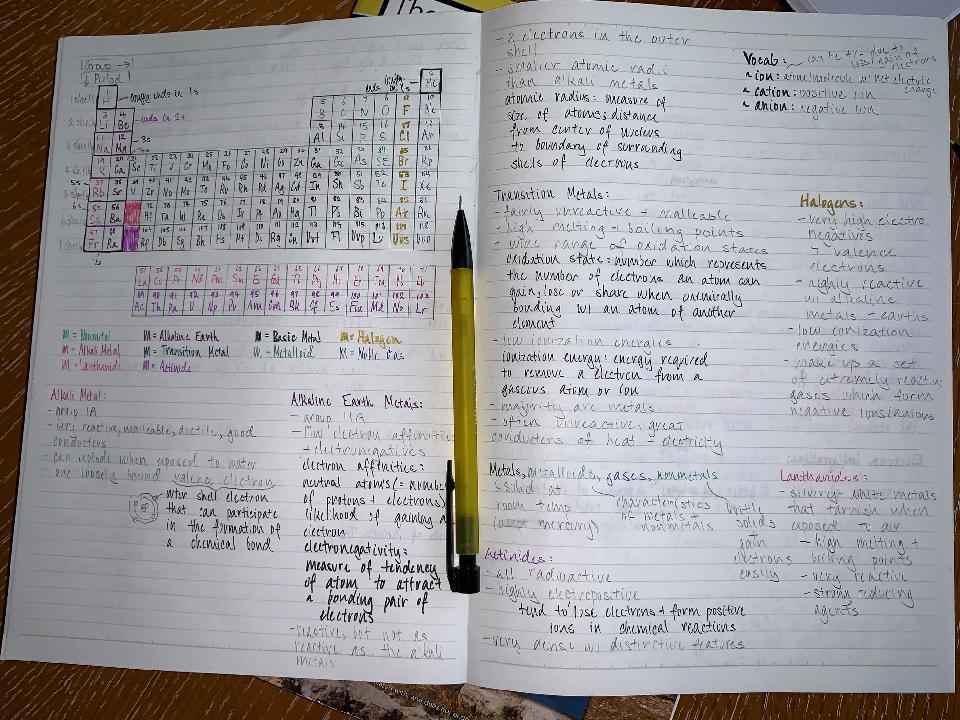 The
Group →
↓ Period
1 shell
config ends in 1s
ends in 1s
ends in 2s
3s
1
H
2
He
3 4 5 6 7 8 9 10
Li Be B C N O F Ne
11 12 13 14 15 16 17
Na Mg Al Si P S Cl Ar
K Ca Sc Ti V Cr Mn Fe Co Ni Cu Zn Ga Ge As Se Br Kr
Rb Sr Y Zr Nb Mo Tc Ru Rh Pd Ag Cd In Sn Sb Te I Xe
Cs Ba Hf Ta W Re Os Ir Pt Au Hg Tl Pb Bi Po At Rn
Fr Ra Rf Db Sg Bh Hs Mt Ds Rg Cn Uut Fl Uup Lv Uus Uuo
57 58 59 60 61 62 63 64 65 66 67 68 69 70 71
La Ce Pr Nd Pm Sm Eu
89 90 91 92 93 94 95 96 97 98 99 100 101 102 103
Ac Th Pa U Np Pu Am Cm Bk Cf Es Fm Md No Lr
m = Nonmetal
m = Alkaline Earth
m = Basic Metal
m = Halogen
m = Alkali Metal
m = Transition Metal
m = Metalloid
m = Noble Gas
m = Lanthanide
m = Actinide
Alkali Metal:
- group 1A
- very reactive, malleable, ductile, good
conductors
- can explode when exposed to water
- one loosely bound valence electron
outer shell electron
that can participate
in the formation of
a chemical bond
Alkaline Earth Metals:
- group 11A
- low electron affinities
+ electronegatives
electron affinities:
neutral atoms (= number
of protons + electrons)
likelihood of gaining a
electron
electronegativity:
measure of tendency
of atom to attract
a bonding pair of
electrons
- reactive, but not as
reactive as the alkali
metals
- 2 electrons in the outer
shell
- smaller atomic radii
than alkali metals
atomic radius: measure of
size of atoms; distance
from center of nucleus
to boundary of surrounding
shells of electrons
Vocab:
can be +/- due to
loss/gain of
electrons
~ ion: atom/molecule w/ net electric
charge
~ cation: positive ion
~ anion: negative ion
Transition Metals:
- fairly unreactive + malleable
- high melting + boiling points
- wide range of oxidation states
oxidation state: number which represents
the number of electrons an atom can
gain, lose or share when chemically
bonding w/ an atom of another
element
- low ionization energies
ionization energy: energy required
to remove a electron from a
gaseous atom or ion
- majority are metals
- often unreactive; great
conductors of heat + electricity
Halogens:
- very high electro
negatives
- 7 valence
electrons
- highly reactive
w/ alkaline
metals + earths
- low ionization
energies
- make up a set
of extremely reactive
gases which form
negative ions/anions
Metals, metalloids, gases, nonmetals
solid at
room temp
mercury)
characteristics
of metals +
nonmetals
brittle
solids
gain
electrons
easily
Lanthanides:
- silvery white metals
that tarnish when
exposed to air
- high melting +
boiling points
- very reactive
- strong reducing
agents
Actinides:
- all radioactive
- highly electropositive
tend to lose electrons + form positive
ions in chemical reactions
- very dense w/ distinctive features